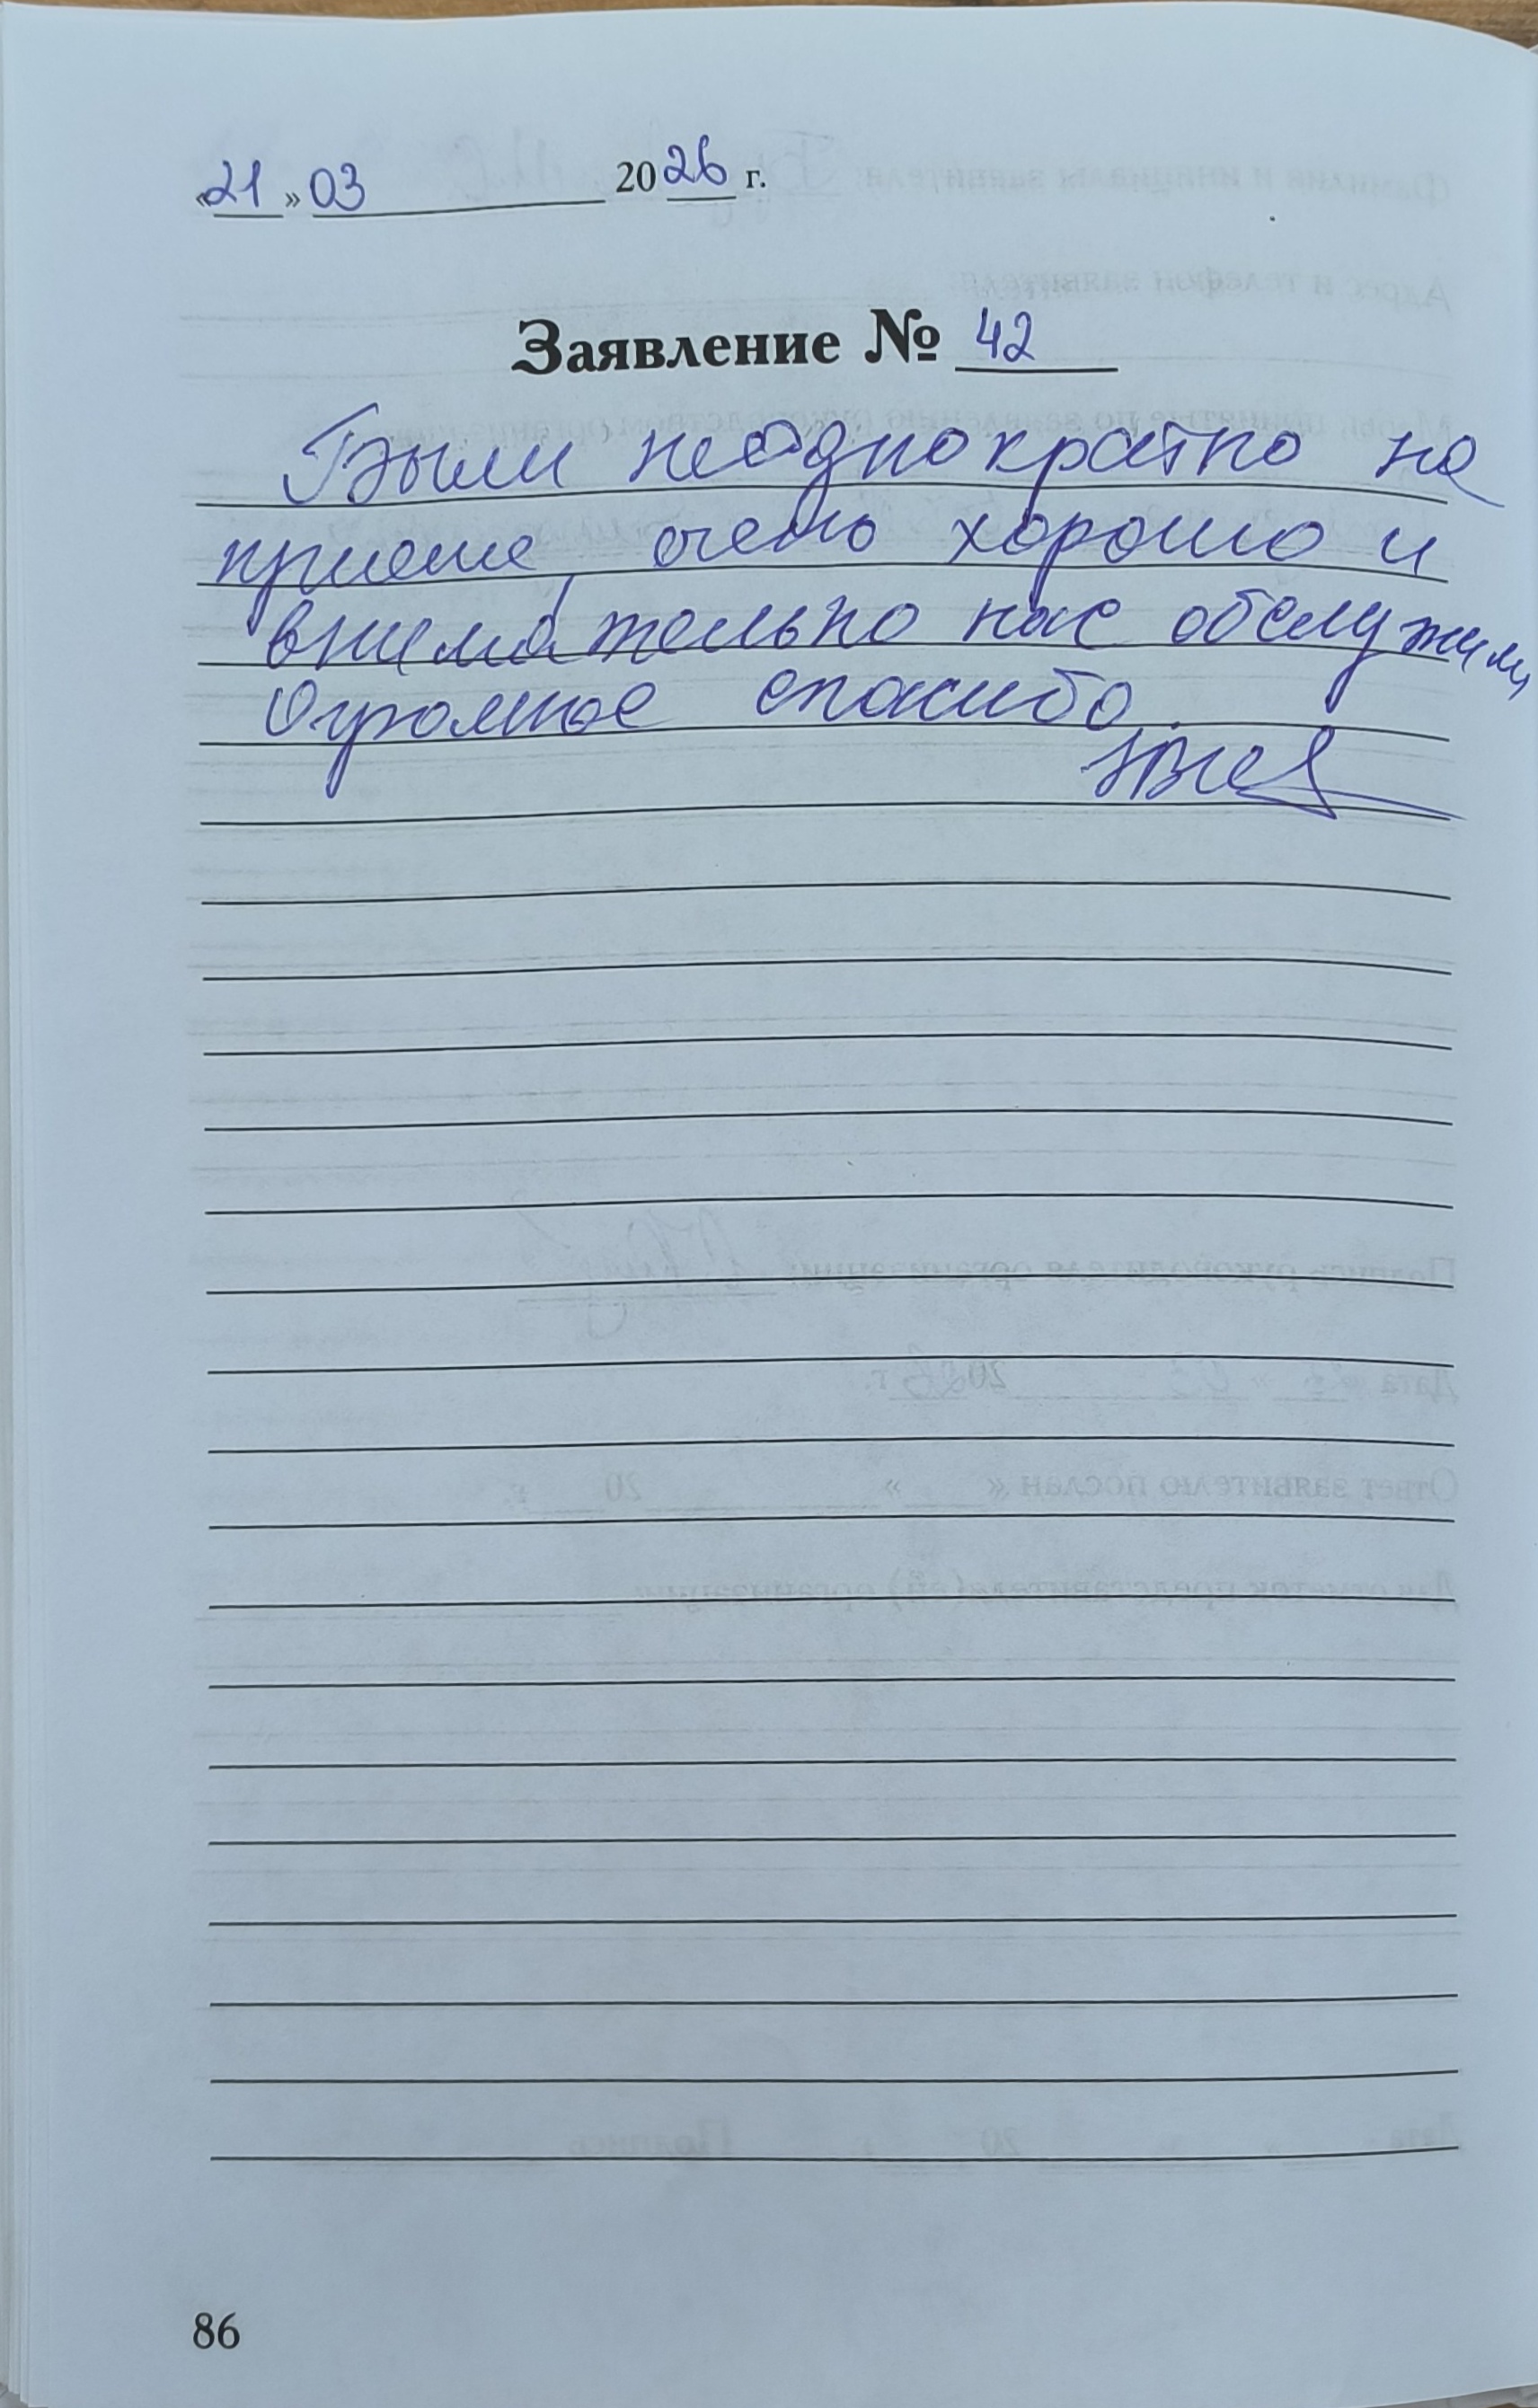 «21» 03 2026 г.
Заявление № 42
Были неоднократно на
приеме, очень хорошо и
внимательно нас обслужили,
Огромное спасибо.
86